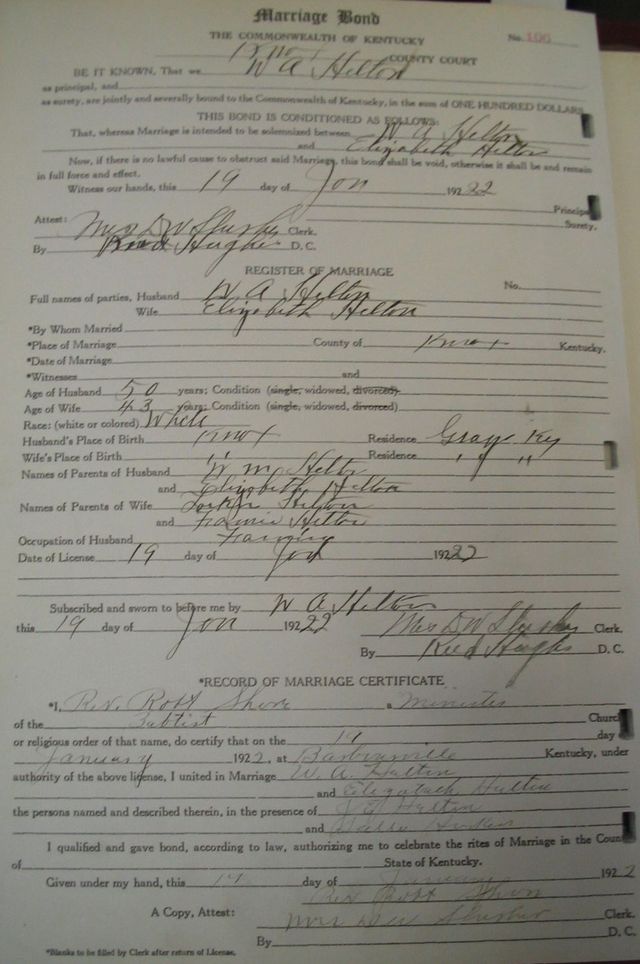 Marriage Bond
THE COMMONWEALTH OF KENTUCKY
No. 196
Knox COUNTY COURT
BE IT KNOWN, That we W A Helton
as principal, and
as surety, are jointly and severally bound to the Commonwealth of Kentucky, in the sum of ONE HUNDRED DOLLARS
THIS BOND IS CONDITIONED AS FOLLOWS:
That, whereas Marriage is intended to be solemnized between W A Helton
and Elizabeth Helton
Now, if there is no lawful cause to obstruct said Marriage, this bond shall be void, otherwise it shall be and remain
in full force and effect.
Witness our hands, this 19 day of Jan 192 22
Principal
Surety.
Attest: Mrs D W Slusher Clerk.
By Reed Hughes D. C.
REGISTER OF MARRIAGE
No.
Full names of parties, Husband W A Helton
Wife Elizabeth Helton
*By Whom Married
*Place of Marriage County of Knox Kentucky.
*Date of Marriage
*Witnesses and
Age of Husband 50 years; Condition (single, widowed, divorced)
Age of Wife 43 years; Condition (single, widowed, divorced)
Race: (white or colored) White
Husband's Place of Birth Knox Residence Gray Ky
Wife's Place of Birth " Residence " "
Names of Parents of Husband Wm Helton
and Elizabeth Helton
Names of Parents of Wife Helton
and Helton
Occupation of Husband Farming
Date of License 19 day of Jan 192 22
Subscribed and sworn to before me by W A Helton
this 19 day of Jan 192 22 Mrs D W Slusher Clerk.
By Reed Hughes D. C.
*RECORD OF MARRIAGE CERTIFICATE
*I, Rev. Robt a Minister
of the Baptist Church
or religious order of that name, do certify that on the 19 day
January 192 2, at Barbourville Kentucky, under
authority of the above license, I united in Marriage W. A. Helton
and Elizabeth Helton
the persons named and described therein, in the presence of Helton
and
I qualified and gave bond, according to law, authorizing me to celebrate the rites of Marriage in the Coun
of State of Kentucky.
Given under my hand, this 19 day of January 192 2
Rev Robt
A Copy, Attest: Mrs D W Slusher Clerk.
By D. C.
*Blanks to be filled by Clerk after return of License.